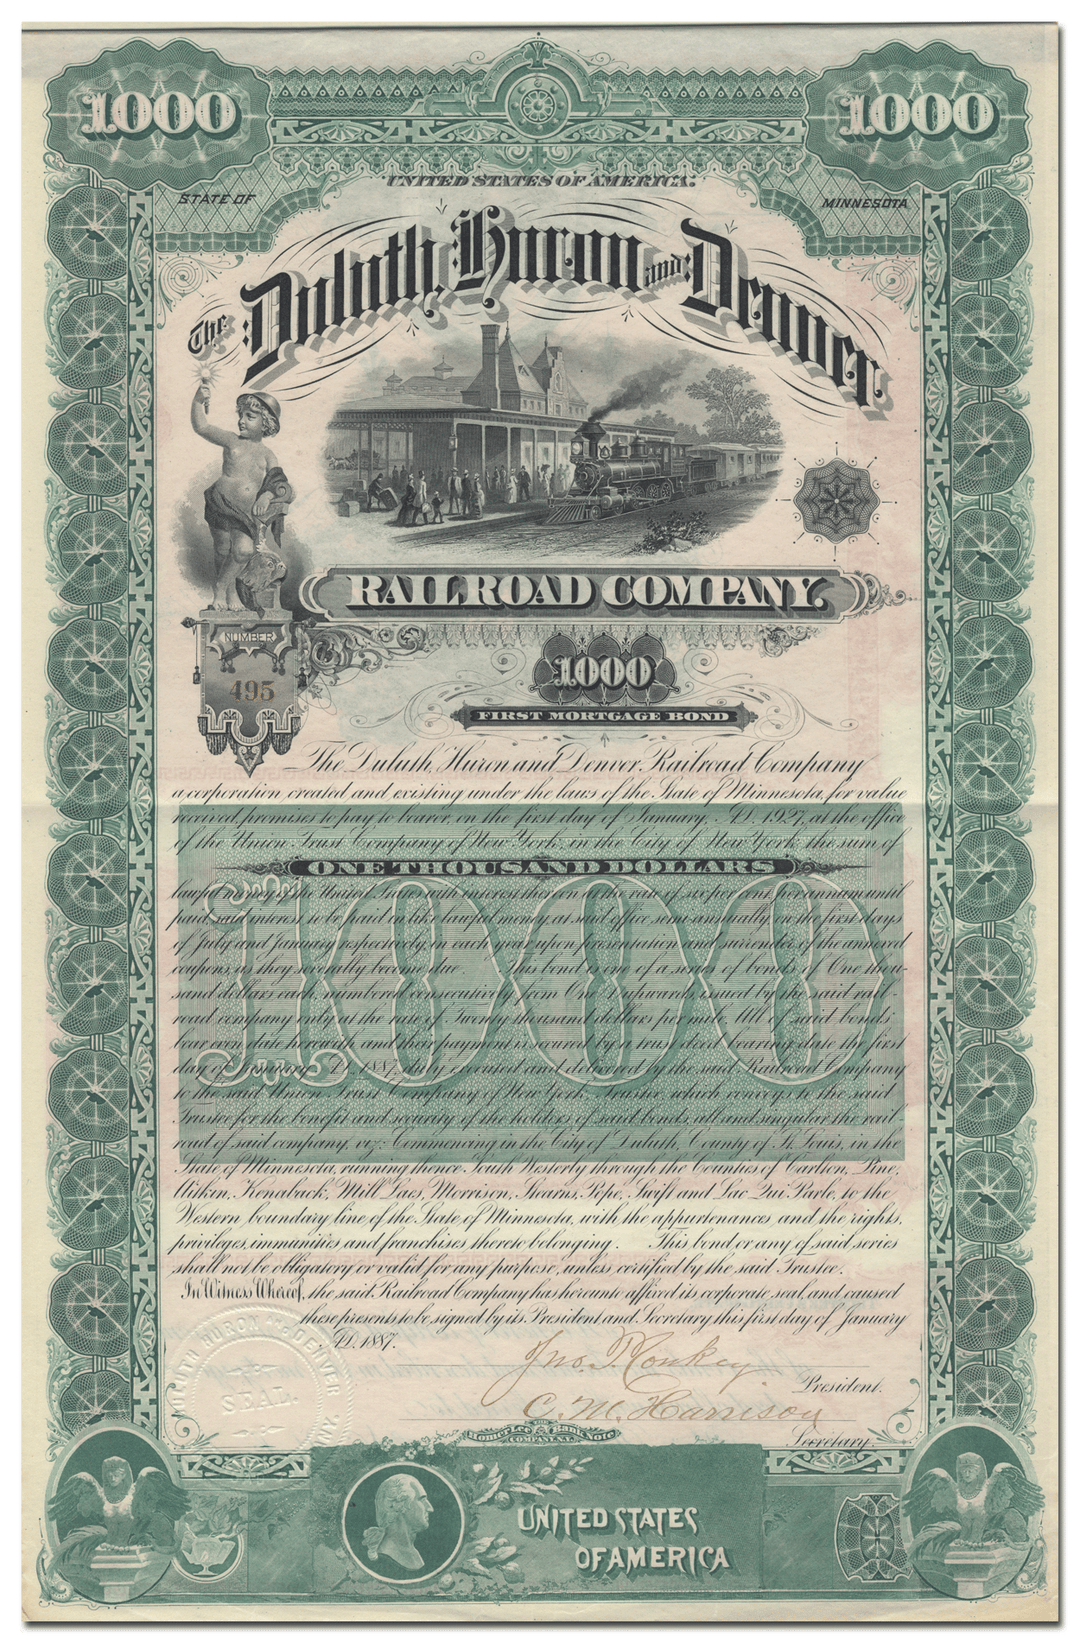 1000 1000
UNITED STATES OF AMERICA.
STATE OF MINNESOTA
The Duluth, Huron and Denver
RAILROAD COMPANY.
NUMBER
495
1000
FIRST MORTGAGE BOND
The Duluth, Huron and Denver Railroad Company
a corporation, created and existing under the laws of the State of Minnesota, for value
received, promises to pay to bearer, on the first day of January, A.D. 1927, at the office
of the Union Trust Company of New York, in the City of New York the sum of
ONE THOUSAND DOLLARS
lawful money of the United States with interest thereon at the rate of six per cent. per annum until
paid, said interest, to be paid in like lawful money, at said office, semi-annually, on the first days
of July and January respectively, in each year upon presentation and surrender of the annexed
coupons, as they severally become due. This bond is one of a series of bonds of One thou-
sand dollars each, numbered consecutively from One upwards, issued by the said rail-
road company only at the rate of Twenty thousand dollars per mile. All of said bonds
bear even date herewith and their payment is secured by a trust deed bearing date the first
day of January A.D. 1887, duly executed and delivered by the said Railroad Company
to the said Union Trust Company of New York, Trustee which conveys to the said
Trustee for the benefit and security of the holders of said bonds, all and singular the rail
road of said company, viz: Commencing in the City of Duluth, County of St. Louis, in the
State of Minnesota, running thence South Westerly through the Counties of Carlton, Pine,
Aitkin, Kenaback, Mill Lacs, Morrison, Stearns, Pope, Swift and Lac Qui Parle, to the
Western boundary line of the State of Minnesota, with the appurtenances and the rights,
privileges, immunities, and franchises thereto belonging. This bond or any of said series
shall not be obligatory or valid for any purpose, unless certified by the said Trustee.
In Witness Whereof, the said Railroad Company has hereunto affixed its corporate seal, and caused
these presents to be signed by its President and Secretary this first day of January
A.D. 1887.
Jno. T. Conkey
President.
C. M. Harrison
Secretary.
DULUTH HURON AND DENVER
SEAL.
THE
Homer Lee Bank Note
COMPANY, N.Y.
UNITED STATES
OF AMERICA